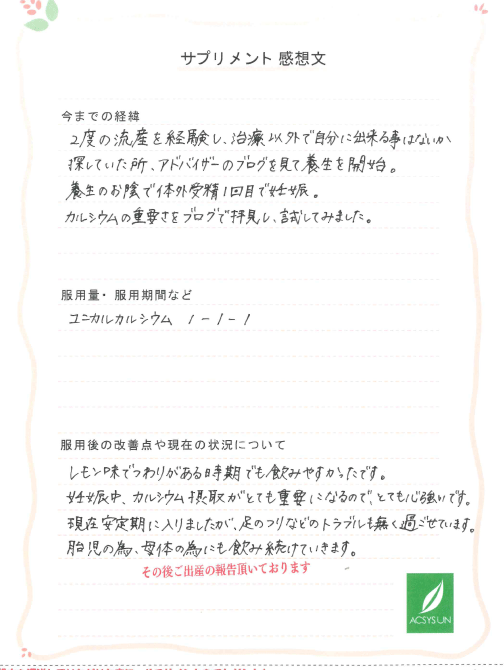 サプリメント 感想文
今までの経緯
2度の流産を経験し、治療以外で自分に出来る事はないか
探していた所、アドバイザーのブログを見て養生を開始。
養生のお陰で体外受精1回目で妊娠。
カルシウムの重要さをブログで拝見し、試してみました。
服用量・服用期間など
ユニカルカルシウム 1-1-1
服用後の改善点や現在の状況について
レモン味でつわりがある時期でも飲みやすかったです。
妊娠中、カルシウム摂取がとても重要になるので、とても心強いです。
現在安定期に入りましたが、足のつりなどのトラブルも無く過ごせています。
胎児の為、母体の為にも飲み続けていきます。
その後ご出産の報告頂いております
ACSYSUN